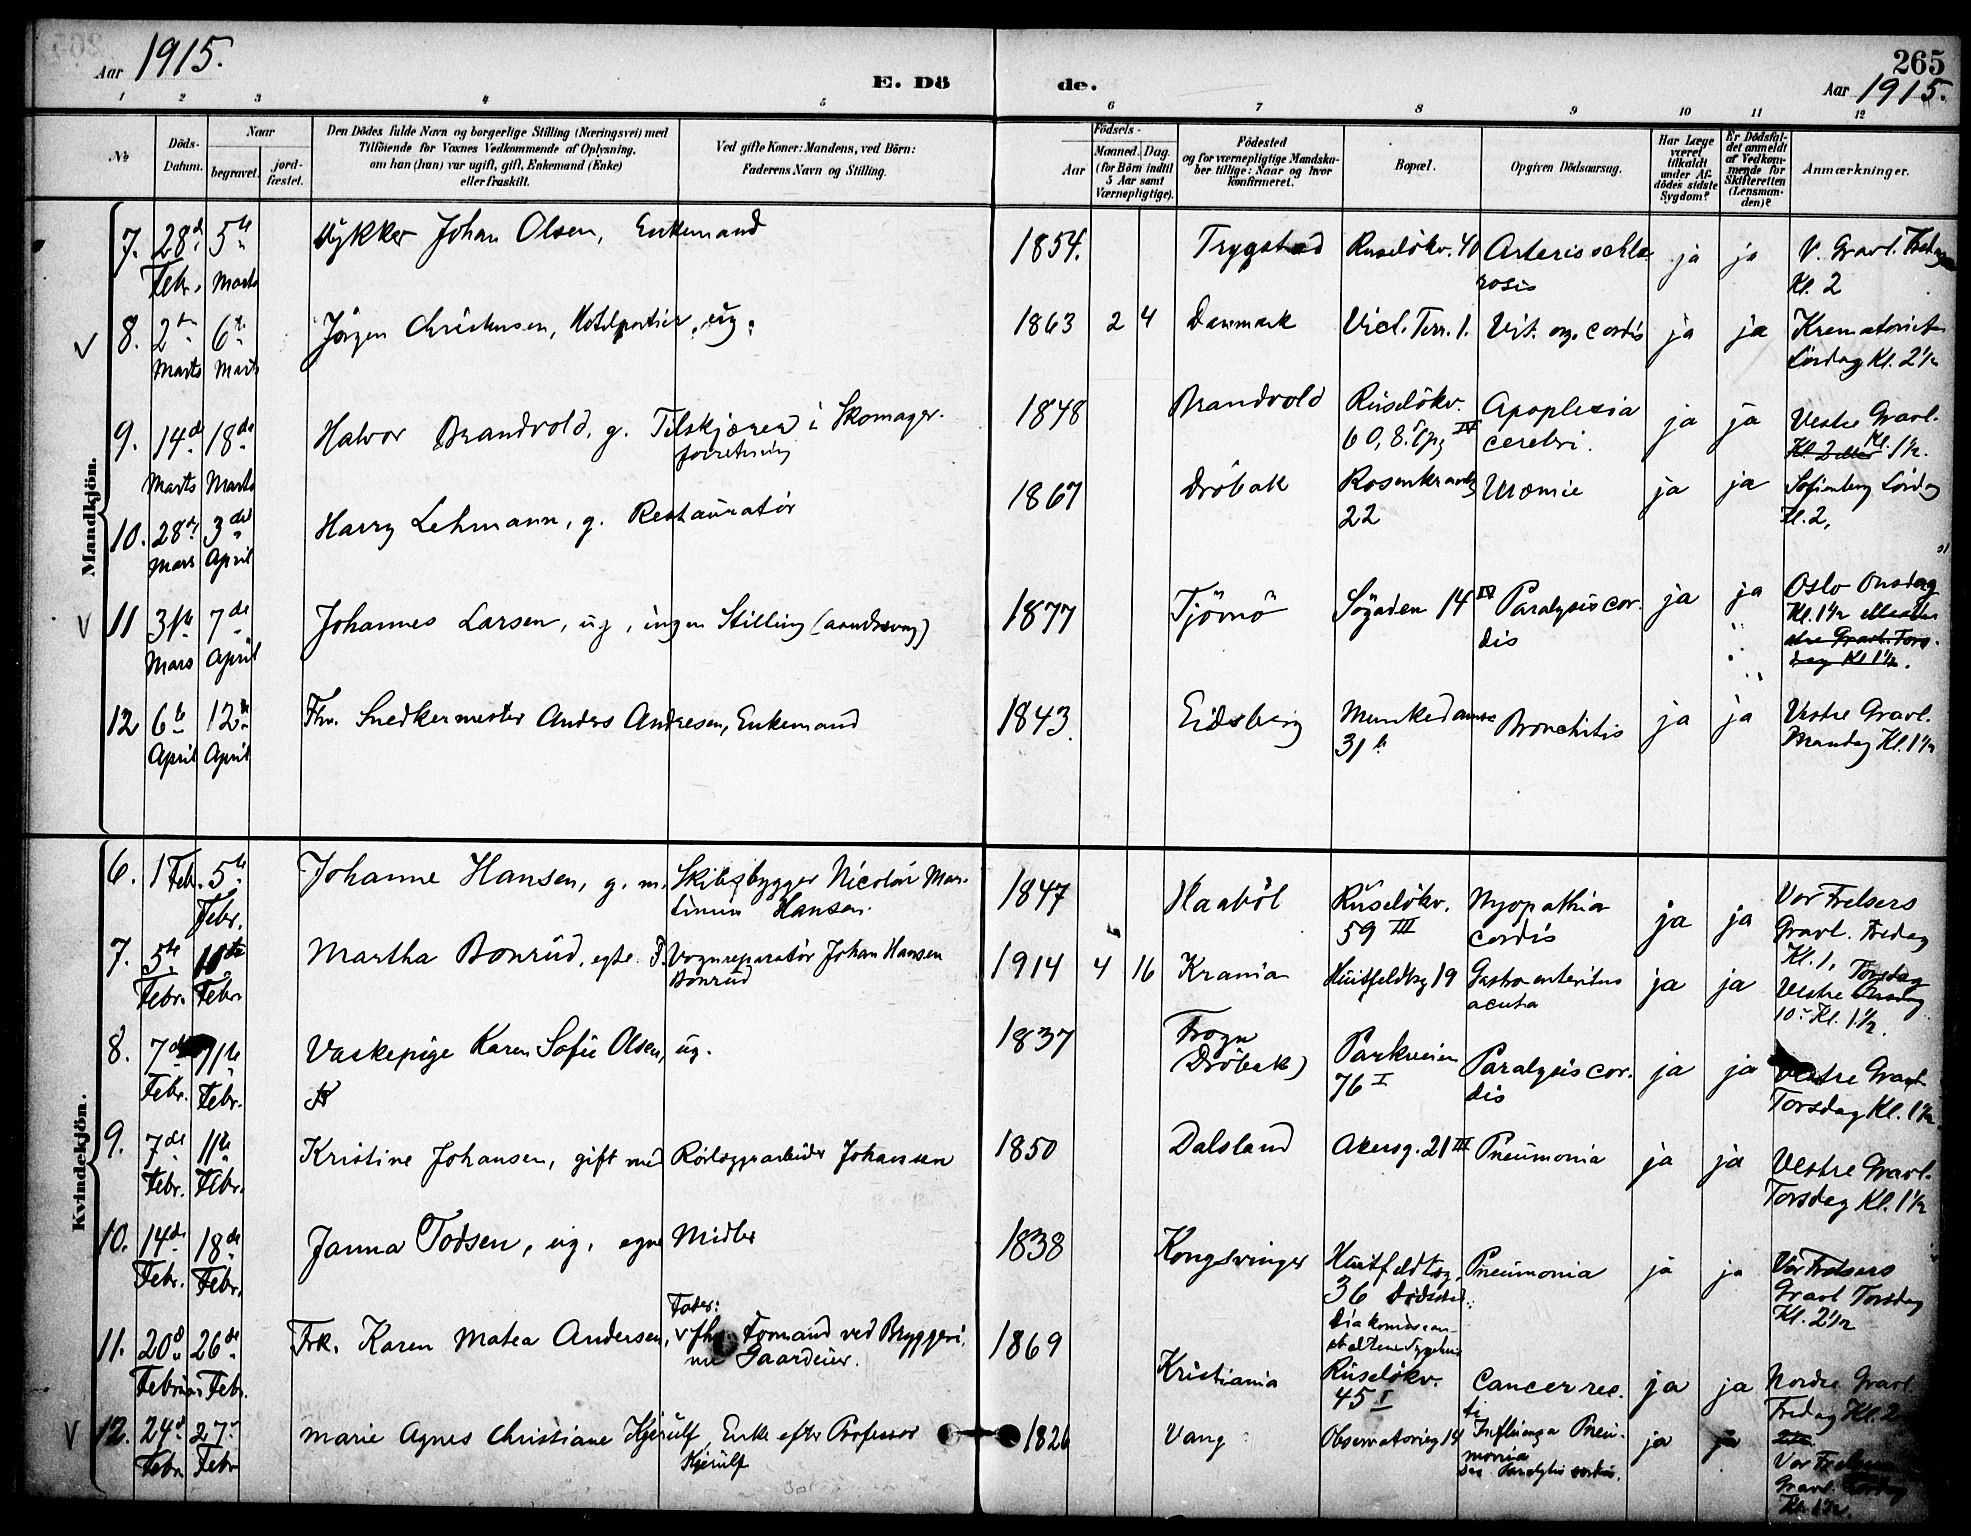 Aar 1915.
E. Döde.
265
Aar 1915.
1 2 3 4 5 6 7 8 9 10 11 12
No
Döds-Datum.
Naar
begravet.
jord-fæstet.
Den Dödes fulde Navn og borgerlige Stilling (Næringsvei) med
Tilföiende for Voxnes Vedkommende af Oplysning,
om han (hun) var ugift, gift, Enkemand (Enke)
eller fraskilt.
Ved gifte Koner: Mandens, ved Börn:
Faderens Navn og Stilling.
Födsels-
Aar
Maaned. Dag.
(for Börn indtil
5 Aar samt
Værnepligtige).
Födested
og for værnepligtige Mandska-
ber tillige: Naar og hvor
konfirmeret.
Bopæl.
Opgiven Dödsaarsag.
Har Læge
været
tilkaldt
under Af-
dödes sidste
Sygdom?
Er Dödsfal-
det anmeldt
af Vedkom-
mende for
Skifteretten
(Lensman-
den)?
Anmærkninger.
Mandkjön.
7. 28d Febr. 5te Marts Johan Olsen, Enkemand 1854. Trygstad Ruselökv. 40 Arterioschle
rosis ja ja V. Gravl.
Kl. 2
8. 2den Marts 6te Marts Jörgen Christensen, Hotelportier, ug. 1863 2 4 Danmark Vict. Terr. 1. Vit. org. cordis ja ja Krematoriet
Lördag Kl. 2½
9. 14de Marts 18de Marts Halvor Brandvold, g. Tilskjærer i Skomager-
forretning 1848 Brandvold Ruselökv.
60, 8. Opg IV Apoplexia
cerebri. ja ja Vestre Gravl.
Kl. 2 eller Kl. 1½.
10. 28de Mars 3die April Harry Lehmann, g. Restauratör 1867 Dröbak Rosenkrantzg
22 Uræmie ja ja Sofienberg Lördag
Kl. 2,
11 31te Mars 7de April Johannes Larsen, ug, ingen Stilling (aandssvag) 1877 Tjömö Sögaden 14 IV Paralysis cor-
dis ja ja Oslo Onsdag
Kl. 1½ eller
Gravl. Tors-
dag Kl 1½.
12 6te April 12te April Fhv. Snedkermester Anders Andresen, Enkemand 1843. Eidsberg Munkedamsv
31 b Bronchitis ja ja Vestre Gravl.
Mandag Kl. 1½
Kvindekjön.
6. 1 Febr. 5te Febr. Johanne Hansen, g. m. Skibsbygger Nicolai Mar-
tinius Hansen. 1847 Haaböl Ruselökv.
59 III Myopathia
cordis ja ja Vor Frelsers
Gravl. Fredag
Kl. 1,
7. 5te Febr. 10de Febr. Martha Bonrud, egte. F. Vognreparatör Johan Hansen
Bonrud 1914 4 16 Krania Huitfeldtsg 19 Gastroenteritus
acuta ja ja Torsdag
Vestre Onsdag
10de Kl. 1½.
8. 7de Febr. 11te Febr. Vaskepige Karen Sofie Olsen, ug. 1837 Frogn
Dröbak) Parkveien
76 I Paralysis cor-
dis ja ja Vestre Gravl
Torsdag Kl. 1½
9. 7de Febr. 11te Febr. Kristine Johansen, gift med Rörlæggerarbeider Johansen 1850 Dalsland Akersg. 21 III Pneumonia ja ja Vestre Gravl.
Torsdag Kl. 1½
10. 14de Febr. 18de Febr. Janna Todsen, ug, egne Midler 1838 Kongsvinger Huitfeldtsg.
36 Dödssted:
Diakonissean-
staltens Sygehus Pneumonia ja ja Vor Frelsers
Gravl Torsdag
Kl. 2½
11. 20d Februar 26de Febr. Frk. Karen Matea Andersen, Fader:
fhv. Formand ved Bryggeri
nu Gaardeier. 1869 Kristiania Ruselökv.
45 I Cancer rec-
ti ja ja Nordre Gravl.
Fredag Kl. 2
12. 24d Febr 27de Febr Marie Agnes Christiane Kjerulf, Enke efter Professor
Kjerulf 1826 Vang Observatorieg 14 Influenza Pneu-
monia
Paralysis cordis. ja ja Vor Frelsers
Gravl. Lördag
Kl. 1½.